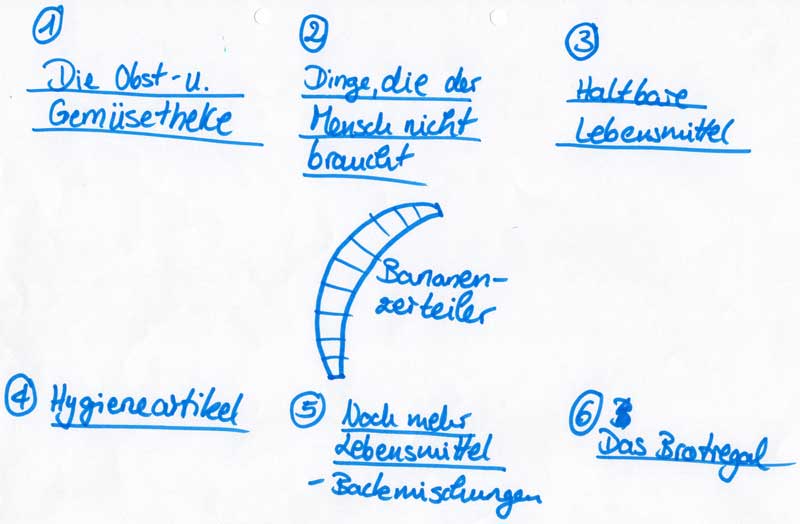 ①
Die Obst- u.
Gemüsetheke
②
Dinge, die der
Mensch nicht
braucht
Bananen-
zerteiler
③
Haltbare
Lebensmittel
④ Hygieneartikel
⑤ Noch mehr
Lebensmittel
- Backmischungen
⑥
Das Brotregal